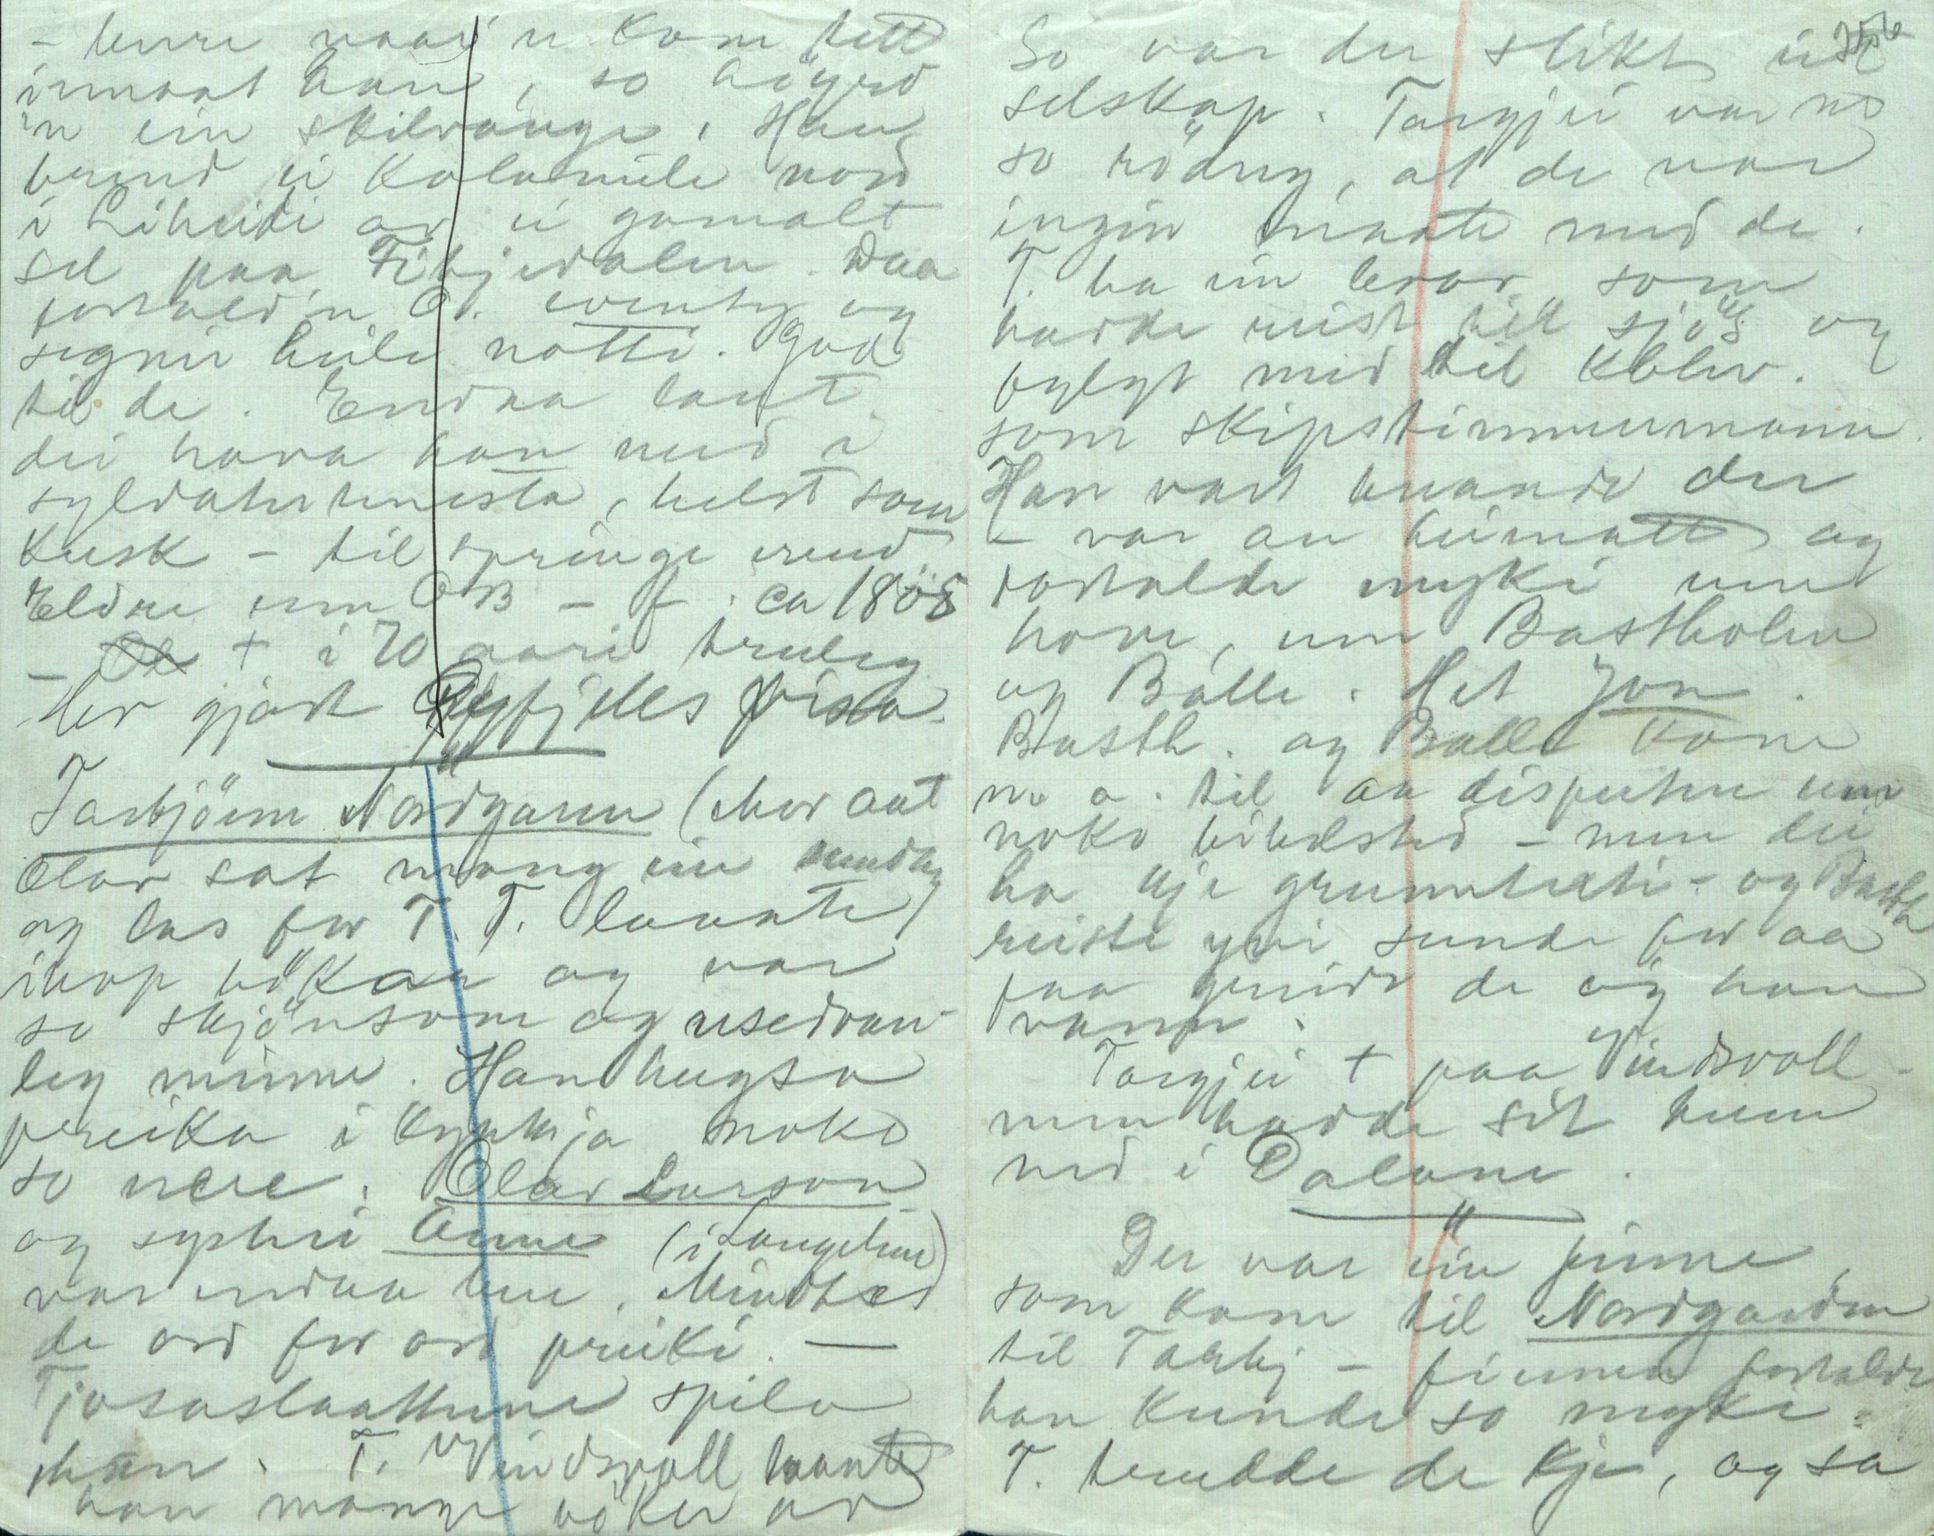 - kvar 'n kom tett
innaat han, so höyrd
'n ein skilvange. Han
brend ei Kolamile nord
i Liheidi av ei gamalt
sel paa Fitjedalen. Daa
fortald'n O. eventy og
segner heile notti. God
til de. Endaa laut
dei hava han med i
syldatertenesta, helst som
Kusk - til springe erend
Eldre enn OB - f. ca 1808
- † i 70 aari truleg
Her gjort Røyfjells visa.
Tarbjörn Nordgaren (Mor aat
Olav sat mang ein sundag
og las for T. T. laante)
ihop bökar og var
so skjönsom og usedvan-
leg minne. Han hugsa
preika i Kyrkja noko
so nære. Olav Larson
og systeri Anne (i Langelim)
var endaa bere. Mindtest
de ord for ord preiki. —
Tjosaslaattene spila
han. T. Vindsvoll laante
han mange böker av
So var der slikt eit
selskap. Targjei var no
so rödug, at de var
ingin maate med de.
T. ha ein bror som
hadde reist til sjös og
fylgt med til Kbhv.
som skipstimmermann.
Han vart buande der
- var an heimatt og
fortalde mykje um
hove, um Bastholm
og Balle. Het Jon.
Basth. og Balle kom
m. a. til aa disputere um
noko bibelsted - men dei
ha kje grunnteksti - og Basth
reiste yvi sunde for aa
faa greide de og han
vann.
Targjei † paa Vindsvoll -
men hadde sit heim
ned i Dalane.
Der var ein finne,
som kom til Nordgarden
til Tarbj - finnen fortalde
han kunde so mykje.
T. trudde de kje, og sa